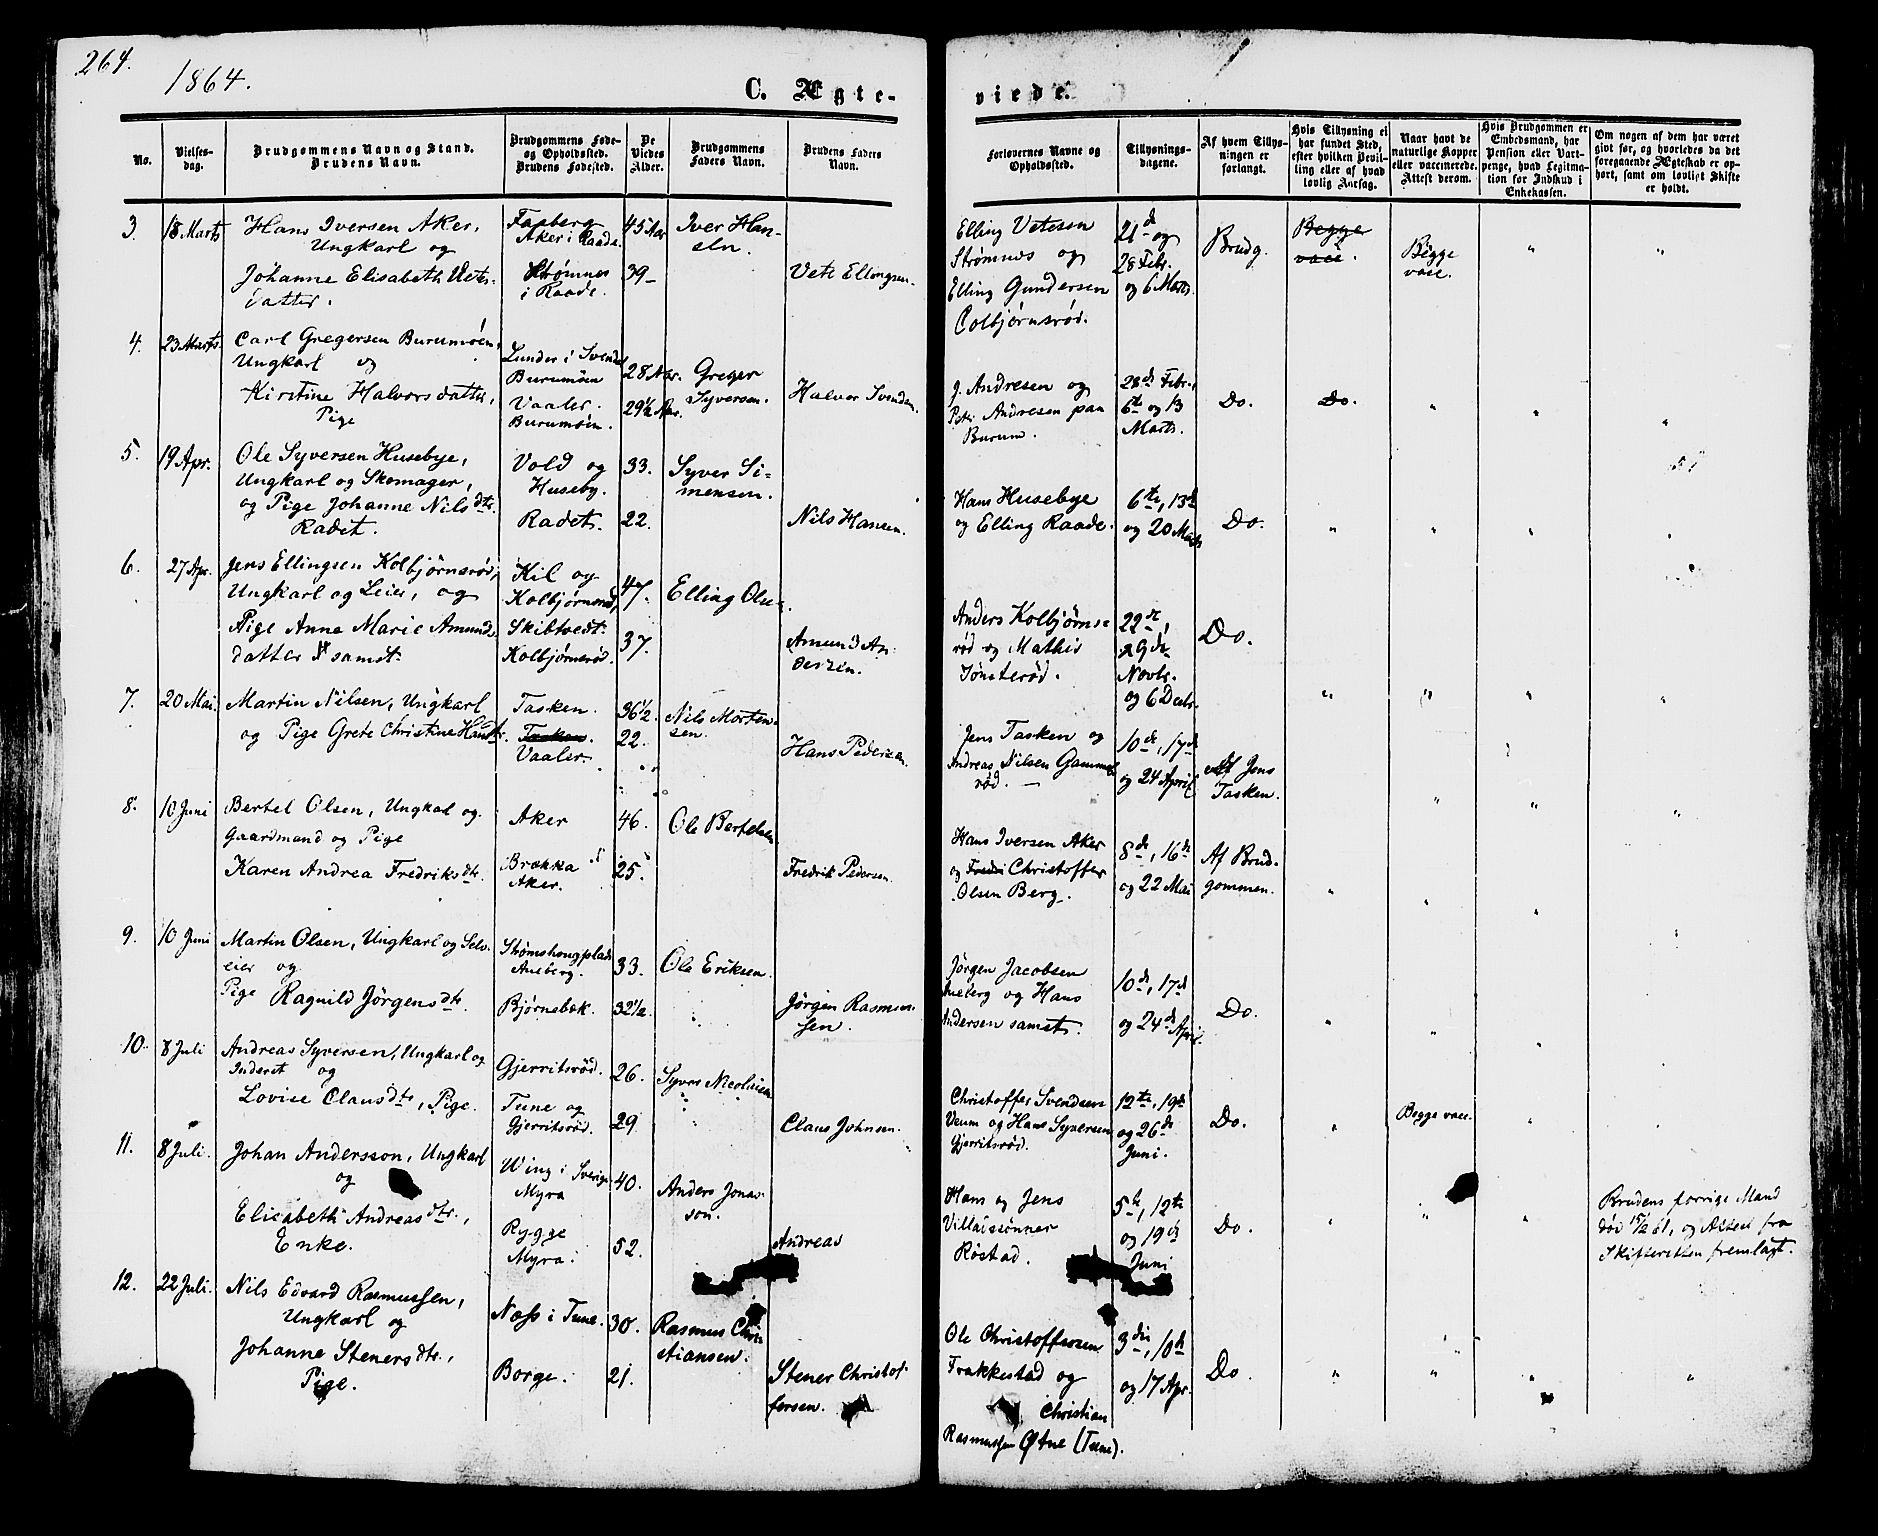 264.
1864.
C. Ægte-
viede.
No.
Vielses-
dag.
Brudgommens Navn og Stand.
Brudens Navn.
Brudgommens Føde-
og Opholdssted.
Brudens Fødested.
De
Viedes
Alder.
Brudgommens
Faders Navn.
Brudens Faders
Navn.
Forlovernes Navne og
Opholdssted.
Tillysnings-
dagene.
Af hvem Tillys-
ningen er
forlangt.
Hvis Tillysning ei
har fundet Sted,
efter hvilken Bevil-
ling eller af hvad
lovlig Aarsag.
Naar havt de
naturlige Kopper
eller vaccinerede.
Attest derom.
Hvis Brudgommen er
Embedsmand, har
Pension eller Vart-
penge, hvad Legitima-
tion for Indskud i
Enkekassen.
Om nogen af dem har været
givt før, og hvorledes da det
foregaaende Ægteskab er op-
hørt, samt om lovligt Skifte
er holdt.
3. 18 Marts Hans Iversen Aker,
Ungkarl og
Johanne Elisabeth Vetes-
datter.
Aker i Raade. 45 Aar
Strømnes
i Raade. 39 –
Iver Han-
seln.
Vete Ellingsen
Elling Vetesen
Strømnes og
Elling Gundersen
Colbjørnsrød.
21de og
28 Febr.
og 6 Marts.
Brudg.
Begge
vacc.
Begge
vacc.
4. 23 Marts. Carl Gregersen Burumøen,
Ungkarl og
Kirstine Halvorsdatter,
Pige
Lunder i Svendal
Burumøen 28 Aar.
Vaaler.
Burumøen. 29½ Aar.
Greger
Syversen.
Halvor Svendsen.
J. Andresen og
Petr. Andresen paa
Burum.
28de Febr.,
6te og 13
Marts.
Do.
Do.
5. 19 Apr. Ole Syversen Husebye,
Ungkarl og Skomager,
og Pige Johanne Nilsdtr.
Radet.
Vold og
Huseby. 33.
Radet. 22.
Syver Si-
mensen.
Nils Hansen.
Hans Husebye
og Elling Raade.
6te, 13de
og 20 Marts
Do.
6. 27 Apr. Jens Ellingsen Kolbjørnsrød,
Ungkarl og Leier, og
Pige Anne Marie Amunds
datter samst.
Kil og
Kolbjørnsrød, 47.
Skibtvedt.
Kolbjørnsrød. 37.
Elling Olsen.
Amund An-
dersen.
Anders Kolbjørns-
rød og Mathis
Tønsterød.
22de,
29de
Novbr.
og 6 Decbr.
Do.
7. 20 Mai. Martin Nilsen, Ungkarl
og Pige Grete Christine Hansdtr.
Tasken. 36½.
Tasken.
Vaaler. 22.
Nils Morten-
sen.
Hans Pedersen.
Jens Tasken og
Andreas Nilsen Gammel
rød. —
10de, 17de
og 24 April
Af Jens
Tasken.
8. 10 Juni Bertel Olsen, Ungkarl og
Gaardmand og Pige
Karen Andrea Fredriksdtr.
Aker 46.
Brækka
Aker. 25.
Ole Bertelsen
Fredrik Pedersen.
Hans Iversen Aker
og Fredri Christoffer
Olsen Berg.
8de, 16de
og 22 Mai
Af Brud-
gommen.
9. 10 Juni Martin Olsen, Ungkarl og Selv-
eier og
Pige Ragnild Jörgensdtr.
Strømshougplads
Aneberg. 33.
Bjørnebæk. 32½.
Ole Eriksen.
Jörgen Rasmus-
sen.
Jörgen Jacobsen
Aneberg og Hans
Andersen samst.
10de, 17de
og 24de April.
Do.
10. 8 Juli Andreas Syversen, Ungkarl og
Inderst og
Lovise Clausdtr, Pige.
Gjerritsrød. 26.
Tune og
Gjerritsrød. 29
Syver Nicolaisen
Claus Johnsen.
Christoffer Svendsen
Veum og Hans Syversen
Gjerritsrød.
12te, 19de
og 26de
Juni.
Do.
Begge vacc.
11. 8 Juli. Johan Andersson, Ungkarl
og
Elisabeth Andreasdtr.,
Enke.
Wing i Sverige
Myra 40.
Rygge
Myra. 52.
Anders Jonas-
son.
Andreas
Hans og Jens
Villaissønner
Røstad.
5te, 12te
og 19de
Juni
Do.
Brudens forrige Mand
død 15/2 61, og Attest fra
Skifteretten fremlagt.
12. 22 Juli. Nils Edvard Rasmussen,
Ungkarl og
Johanne Stenersdtr.,
Pige.
Næss i Tune. 30.
Borge. 21.
Rasmus Chri-
stiansen.
Stener Christof-
fersen.
Ole Christoffersen
Frakkestad og
Christian
Rasmussen Østne (Tune).
3die, 10de
og 17 Apr.
Do.